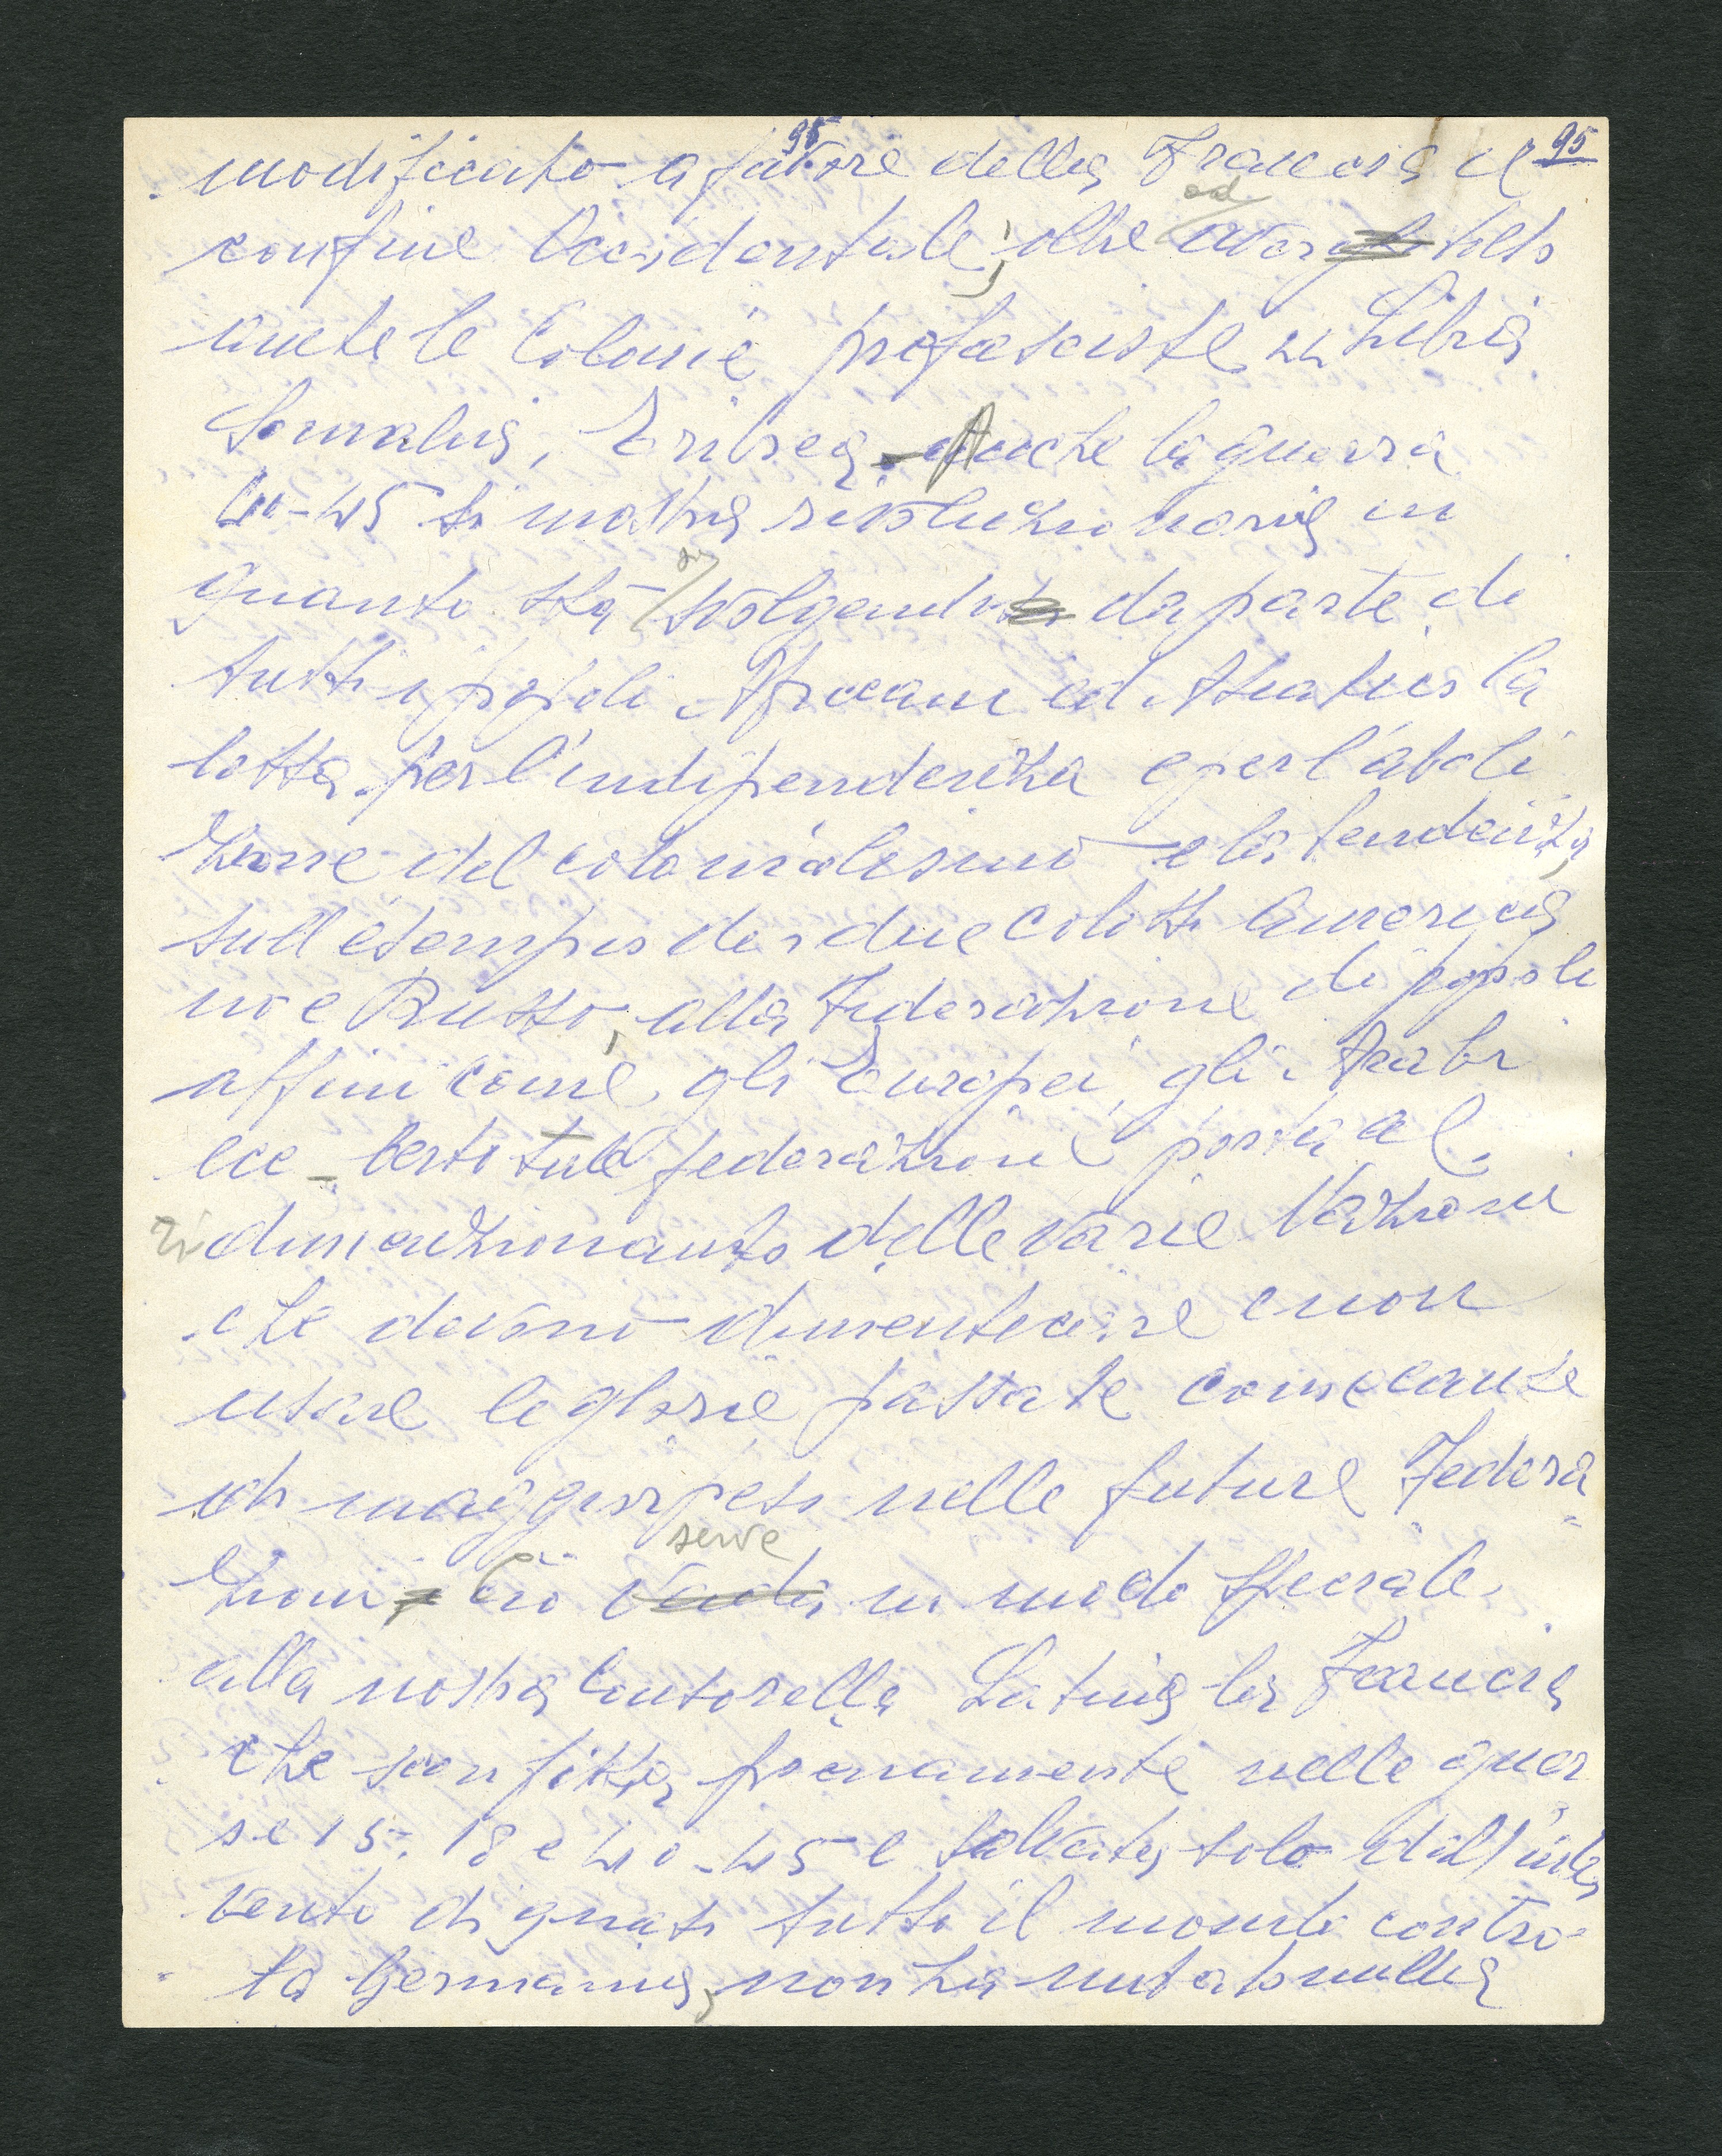 95 95
modificato a favore della Francia il
confine Occidentale; oltre ad aver tolto
anche le Colonie prefasciste in Libia
Somalia, Eritrea. Anche la guerra
40-45 si mostra rivoluzionaria in
quanto sta svolgendo da parte di
tutti i popoli Africani ed Asiatici la
lotta per l'indipendenza e per l'aboli
zione del colonialesimo e la tendenza,
sull'esempio dei due Colossi America
no e Russo, alla Federazione di popoli
affini come gli Europei, gli Arabi
ecc - Certo tale federazione porta al
ridimenzionamento delle varie Nazioni
che devono dimenticare e non
usare le glorie passate come cause
di maggior peso nelle future Federa=
zioni Ciò serve in modo speciale
alla nostra Latina la Francia
che sconfitta pienamente nelle guer
re 15-18 e 40-45 e salvata solo dall'inter
vento di quasi tutto il mondo contro
la Germania, non ha mutato nulla